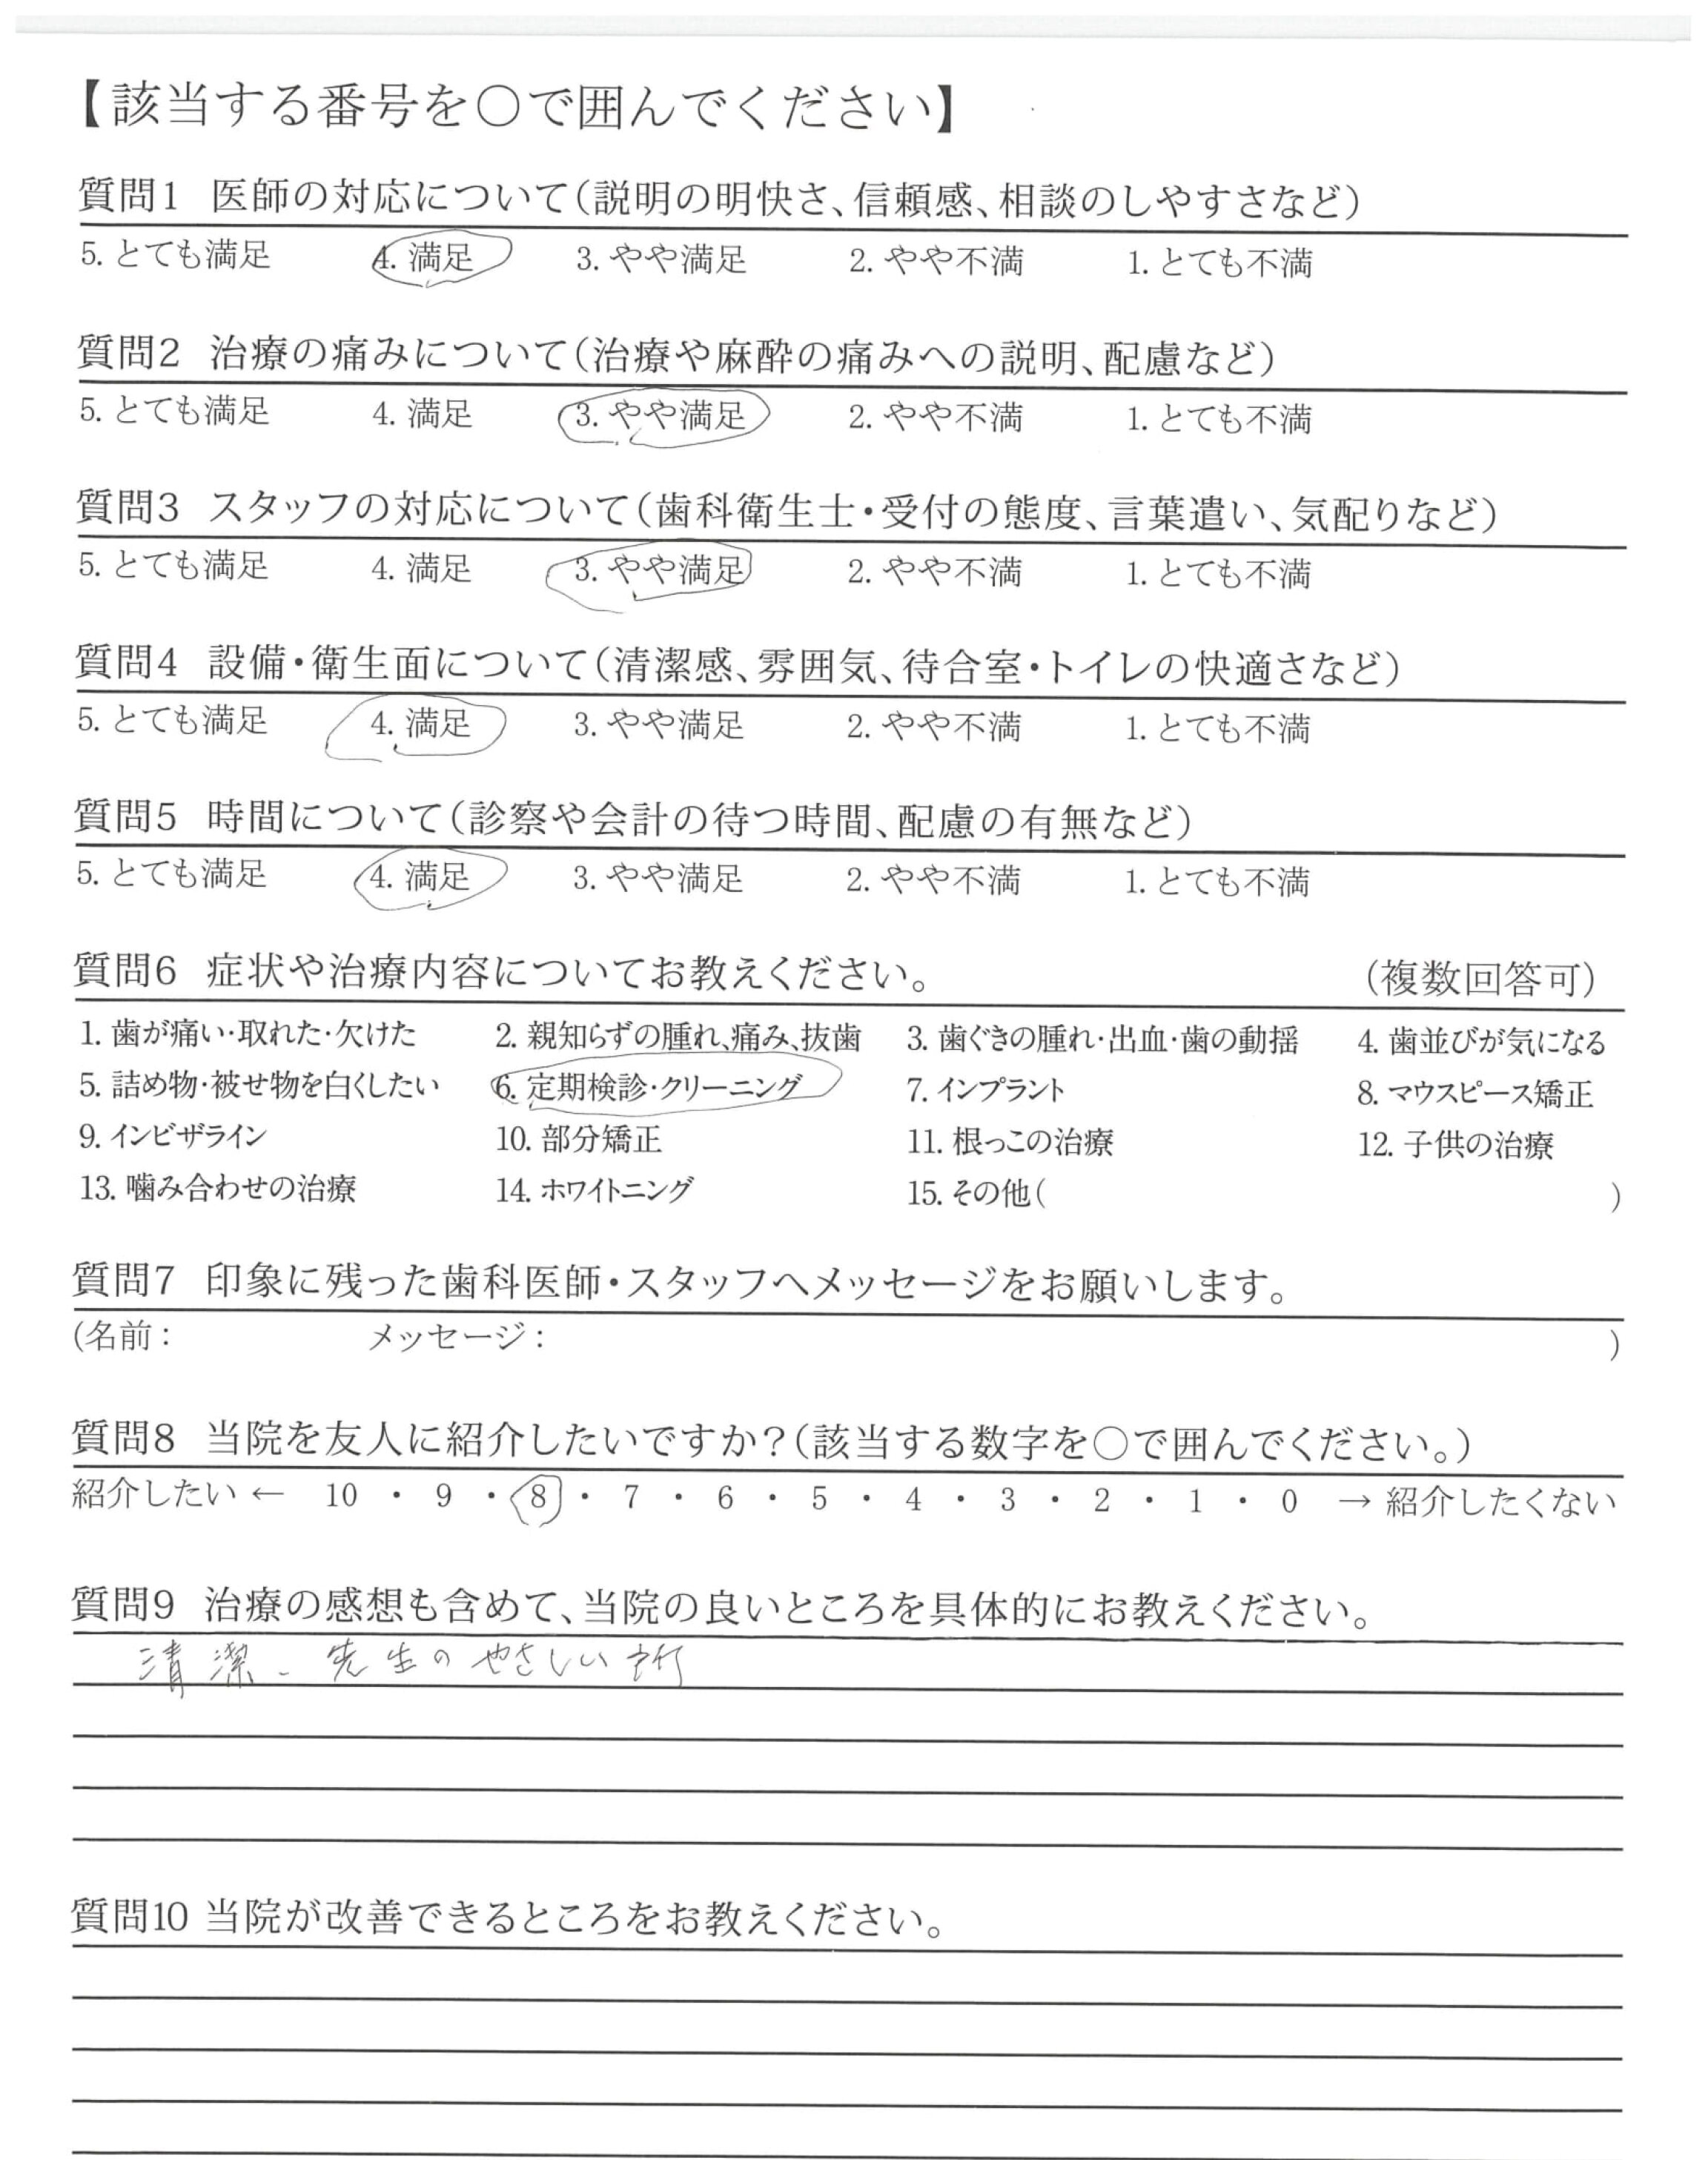 【該当する番号を〇で囲んでください】
質問1 医師の対応について(説明の明快さ、信頼感、相談のしやすさなど)
5. とても満足 4. 満足 3. やや満足 2. やや不満 1. とても不満
質問2 治療の痛みについて(治療や麻酔の痛みへの説明、配慮など)
5. とても満足 4. 満足 3. やや満足 2. やや不満 1. とても不満
質問3 スタッフの対応について(歯科衛生士・受付の態度、言葉遣い、気配りなど)
5. とても満足 4. 満足 3. やや満足 2. やや不満 1. とても不満
質問4 設備・衛生面について(清潔感、雰囲気、待合室・トイレの快適さなど)
5. とても満足 4. 満足 3. やや満足 2. やや不満 1. とても不満
質問5 時間について(診察や会計の待つ時間、配慮の有無など)
5. とても満足 4. 満足 3. やや満足 2. やや不満 1. とても不満
質問6 症状や治療内容についてお教えください。 (複数回答可)
1. 歯が痛い・取れた・欠けた 2. 親知らずの腫れ、痛み、抜歯 3. 歯ぐきの腫れ・出血・歯の動揺 4. 歯並びが気になる
5. 詰め物・被せ物を白くしたい 6. 定期検診・クリーニング 7. インプラント 8. マウスピース矯正
9. インビザライン 10. 部分矯正 11. 根っこの治療 12. 子供の治療
13. 噛み合わせの治療 14. ホワイトニング 15. その他( )
質問7 印象に残った歯科医師・スタッフへメッセージをお願いします。
(名前: メッセージ: )
質問8 当院を友人に紹介したいですか?(該当する数字を〇で囲んでください。)
紹介したい ← 10 ・ 9 ・ 8 ・ 7 ・ 6 ・ 5 ・ 4 ・ 3 ・ 2 ・ 1 ・ 0 → 紹介したくない
質問9 治療の感想も含めて、当院の良いところを具体的にお教えください。
清潔、先生のやさしい所
質問10 当院が改善できるところをお教えください。